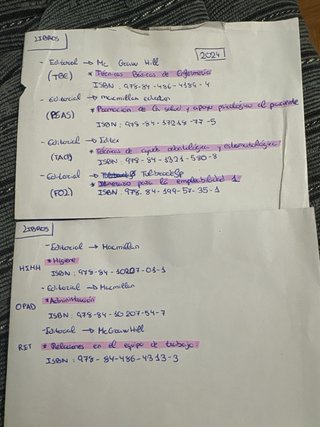 LIBROS
2024
- Editorial → Mc Graw Hill
(TBE) * Técnicas Básicas de Enfermería
ISBN: 978-84-486-4185-4
- editorial → macmillan education
(PSAS) * Promoción de la salud y apoyo psicológico al paciente
ISBN: 978-84-17218-77-5
- Editorial → Editex
(TAO) * Técnicas de ayuda odontológica y estomatológica
ISBN: 978-84-1321-580-8
- Editorial → Tulibrodefp
(FOL) * Itinerario para la empleabilidad 1
ISBN: 978.84-199-57-35-1
LIBROS
- Editorial → Macmillan
HIMH * Higiene
ISBN: 978-84-10207-01-1
- Editorial → Macmillan
OPAD * Administración
ISBN: 978-84-10207-54-7
- Editorial → McGraw Hill
RET * Relaciones en el equipo de trabajo.
ISBN: 978-84-486-4313-3